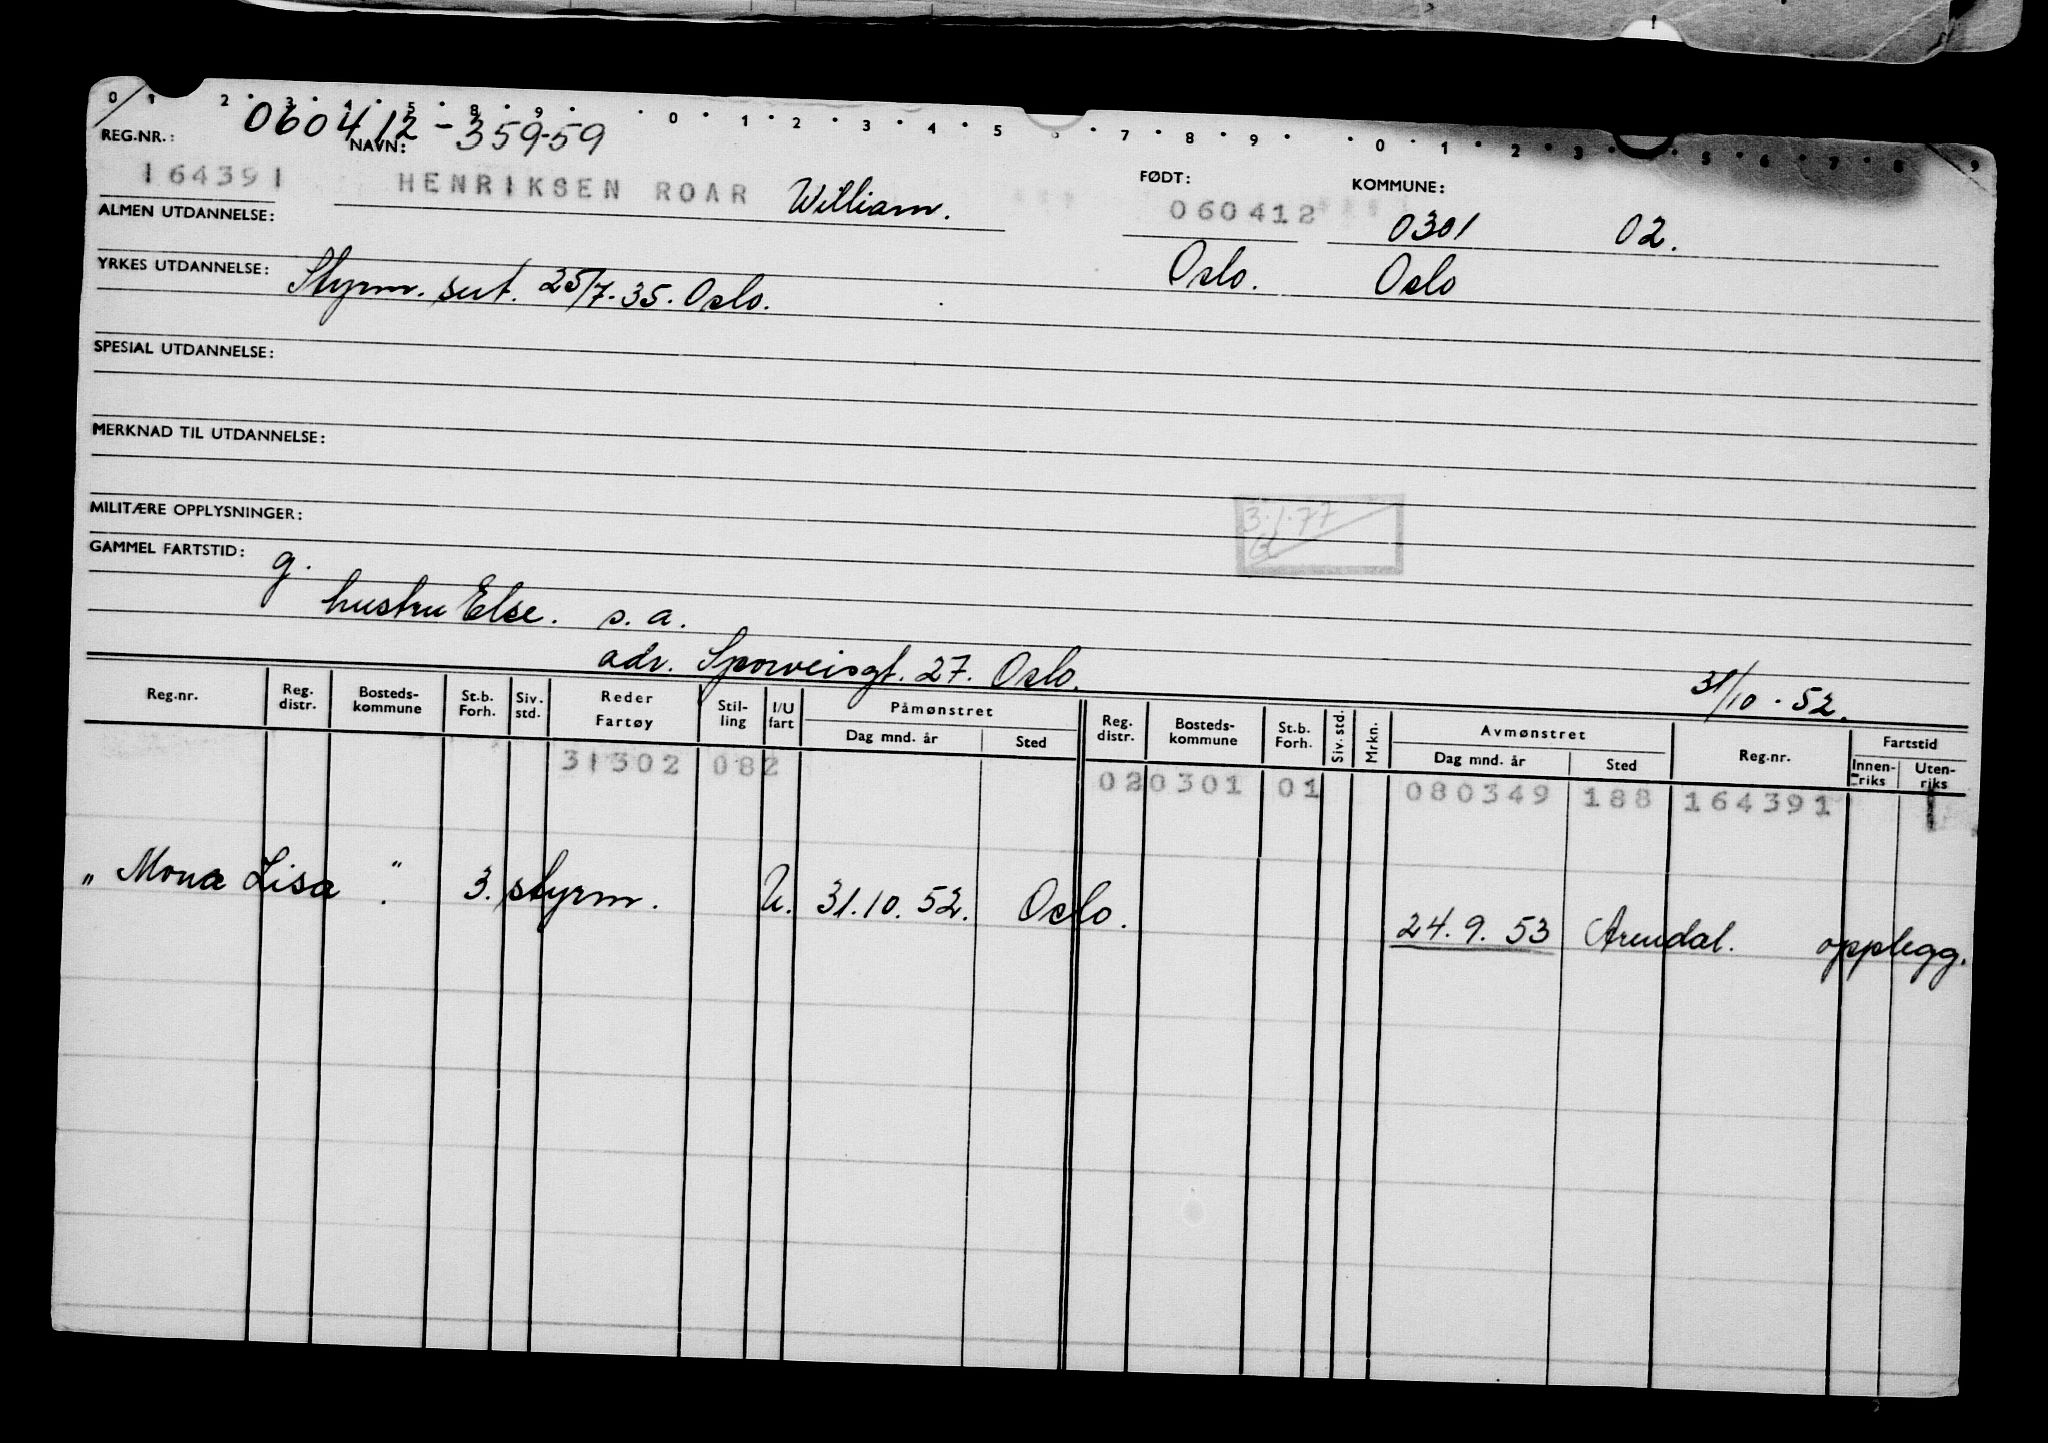 0 1 2 3 4 5 8 9 0 1 2 3 4 5 7 8 9 0 1 2 3 5 6 7 8 9
060412-359-59
REG.NR.: NAVN: FØDT: KOMMUNE:
164391 HENRIKSEN ROAR William. 060412 0301 02.
ALMEN UTDANNELSE:
Oslo. Oslo
YRKES UTDANNELSE: Styrm. sert. 25/7-35. Oslo.
SPESIAL UTDANNELSE:
MERKNAD TIL UTDANNELSE:
MILITÆRE OPPLYSNINGER:
3.1.77
GAMMEL FARTSTID: g.
hustru Else. s.a.
adr. Sporveisgt. 27. Oslo. 31/10-52.
Reg.nr. Reg. distr. Bosteds-kommune St.b. Forh. Siv. std. Reder Fartøy Stil-ling I/U fart Påmønstret Dag mnd. år Sted Reg. distr. Bosteds-kommune St.b. Forh. Siv. std. Mrkn. Avmønstret Dag mnd. år Sted Reg.nr. Fartstid Innen-riks Uten-riks
31302 082 020301 01 080349 188 164391
"Mona Lisa". 3. styrm. U. 31.10.52. Oslo. 24.9.53 Arendal. opplegg.